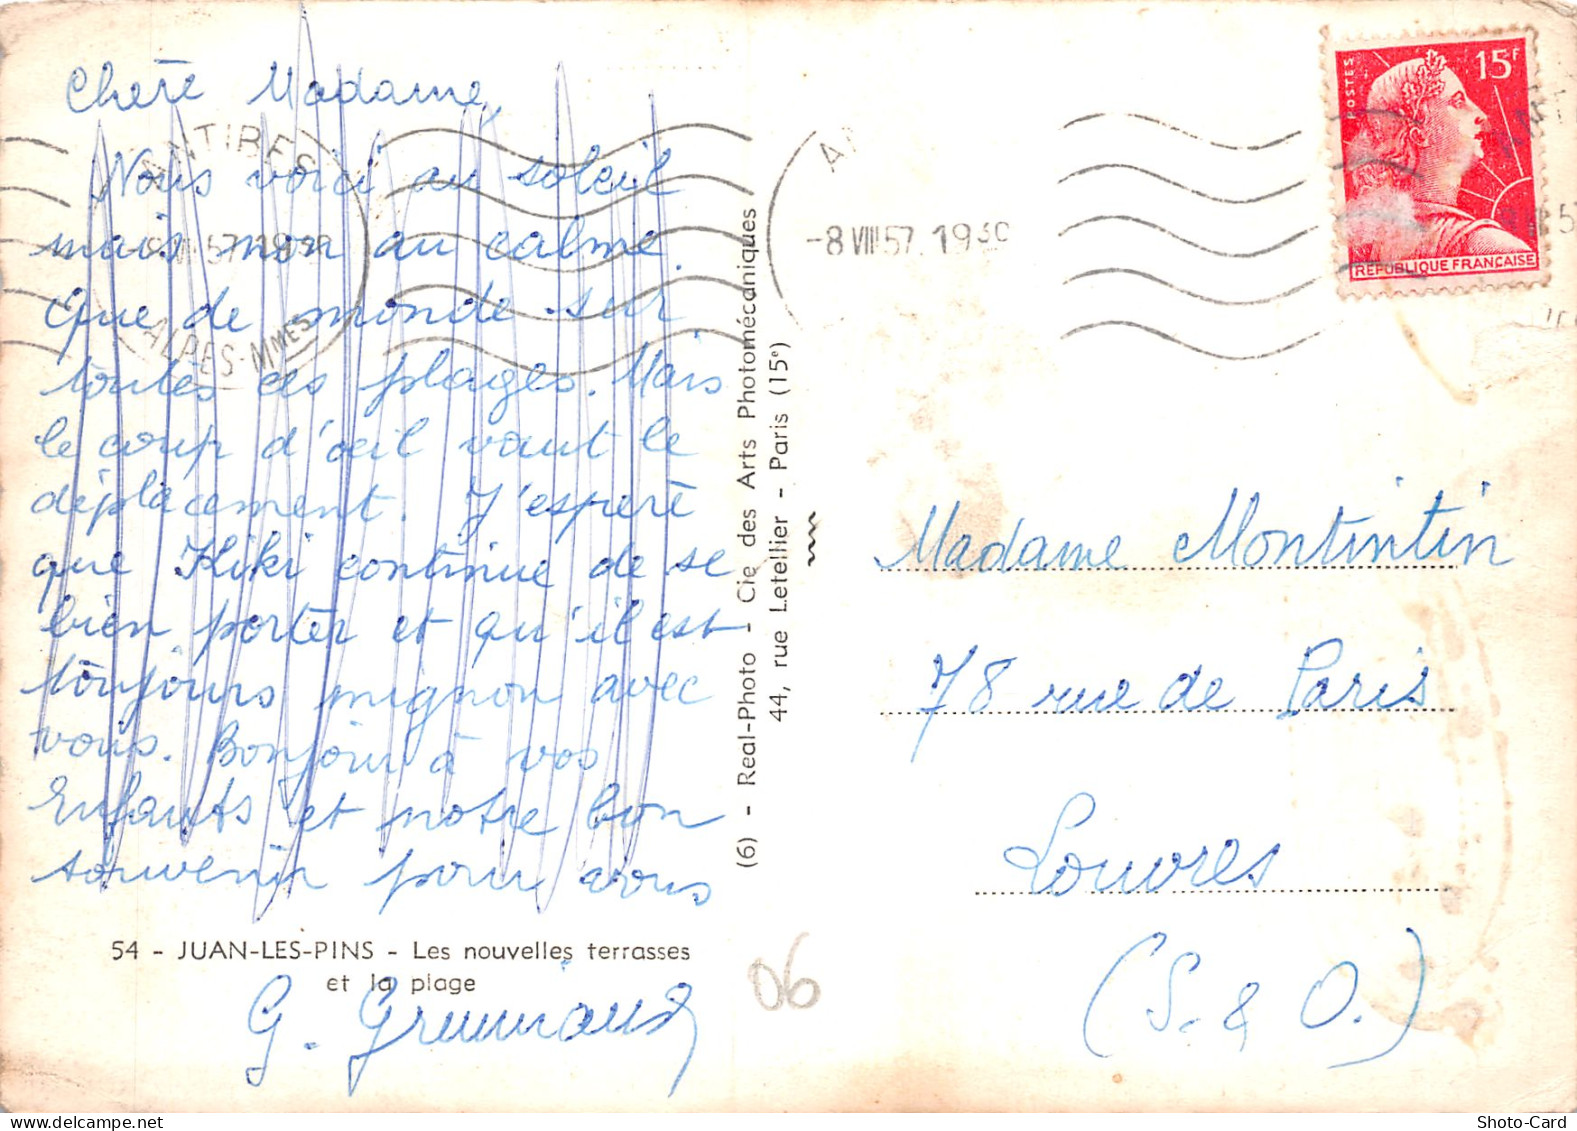 Chère Madame,
Nous voici au soleil
mais non au calme.
Que de monde sur
toutes ces plages. Mais
le coup d'œil vaut le
déplacement. J'espère
que Kiki continue de se
bien porter et qu'il est
toujours mignon avec
vous. Bonjour à vos
Enfants et notre bon
souvenir pour vous
54 - JUAN-LES-PINS - Les nouvelles terrasses
et la plage
(6) - Real-Photo - Cie des Arts Photomécaniques
44, rue Letellier - Paris (15e)
ANTIBES
ALPES-MMES
-8 VIII 57. 1930
POSTES
15F
REPUBLIQUE FRANÇAISE
Madame Montintin
78 rue de Paris
Louvres
(S. & O.)
06
Shoto-Card